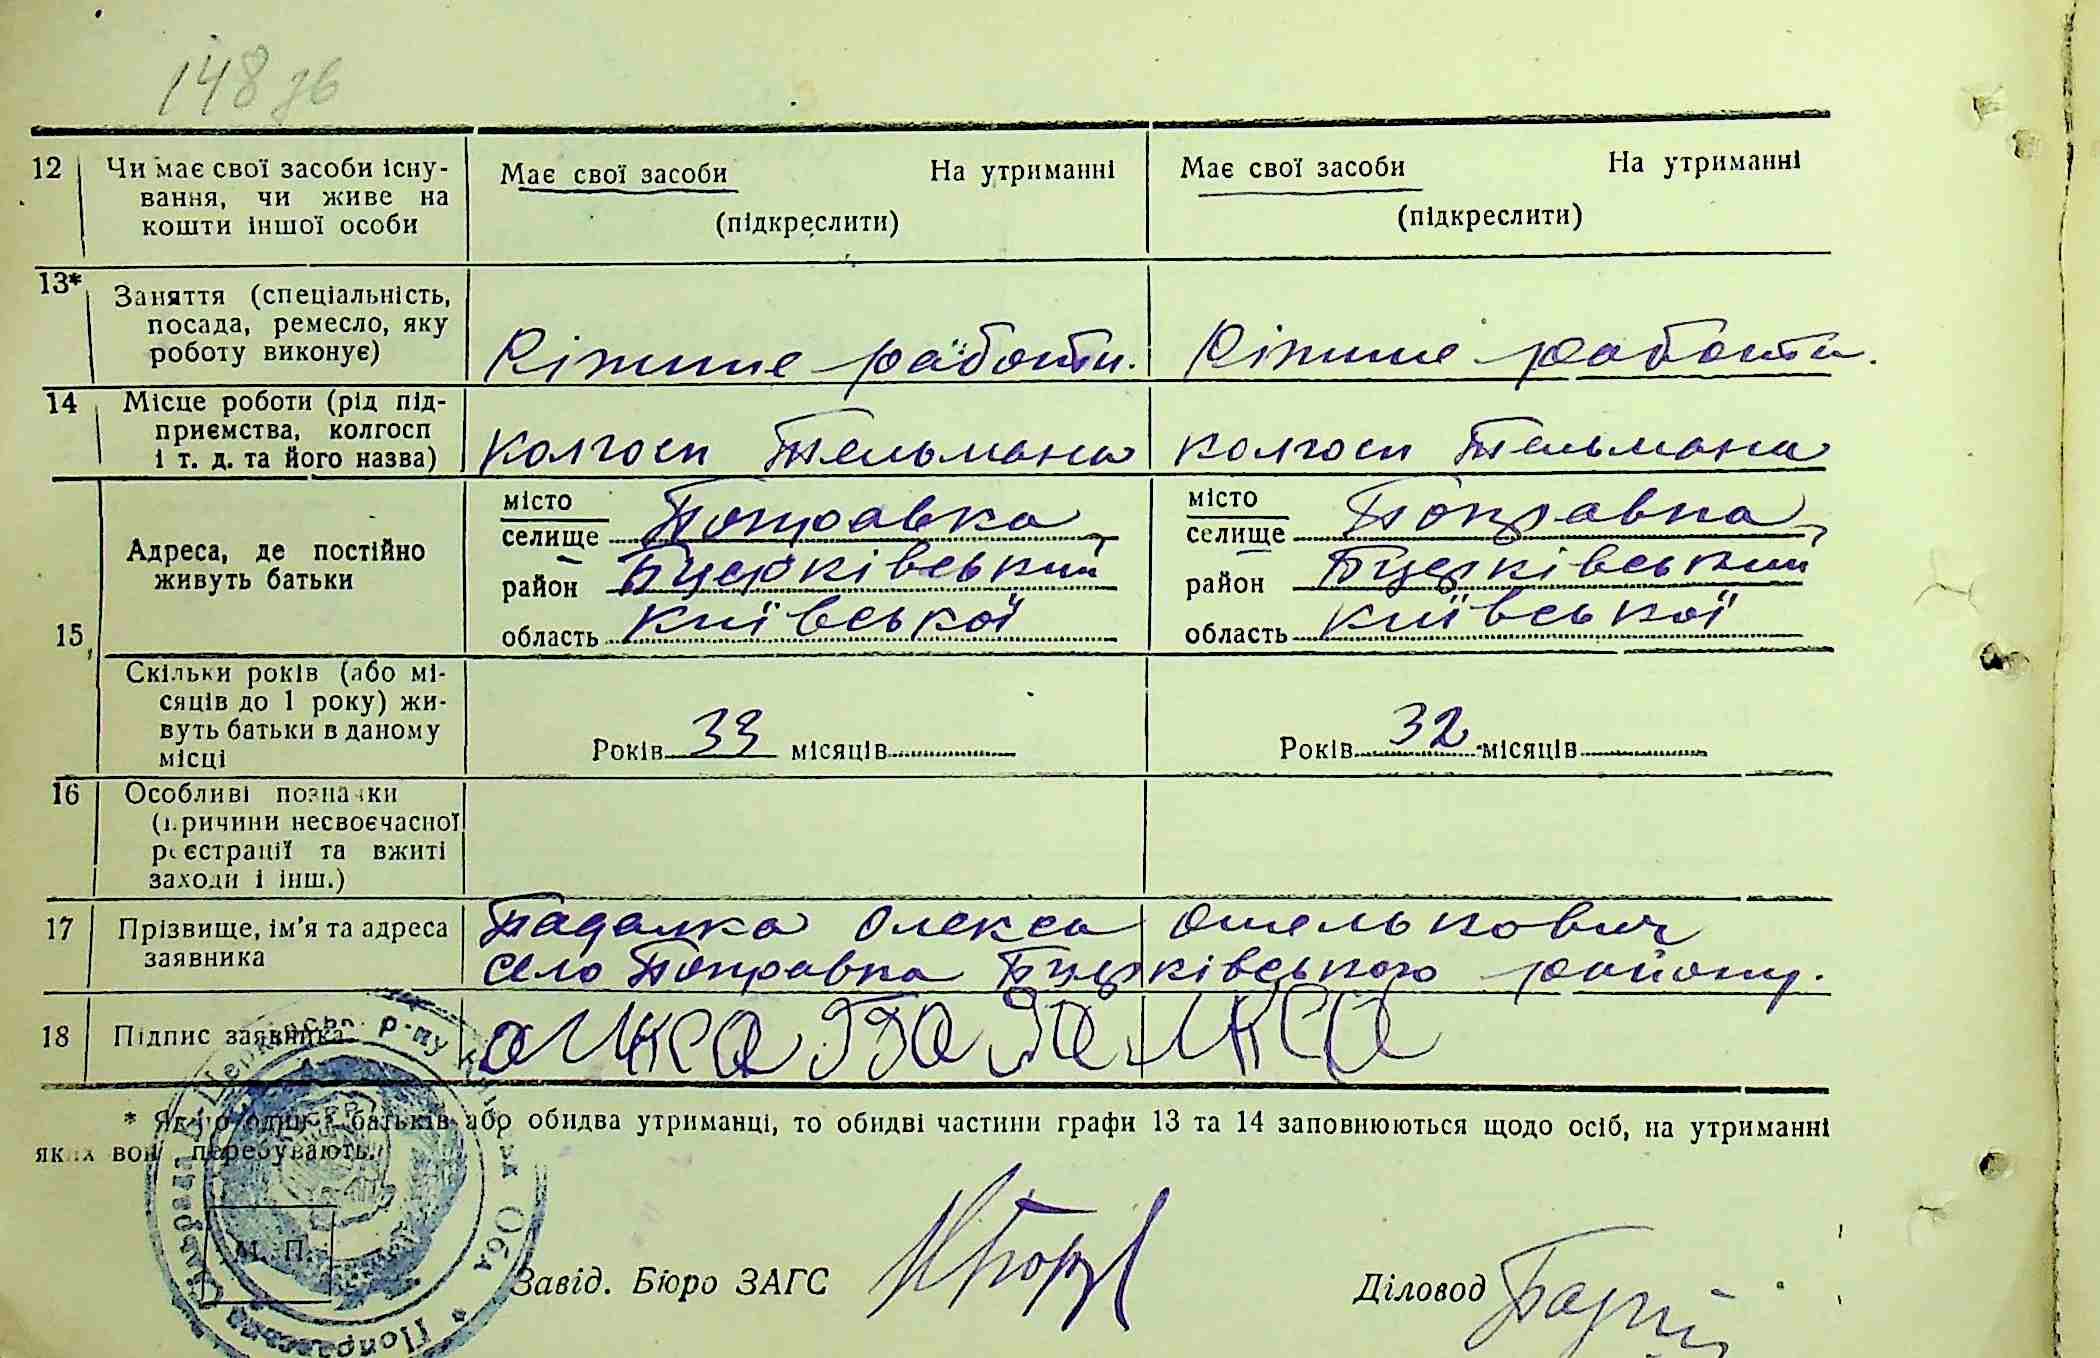 148 зв
12 Чи має свої засоби існу-
вання, чи живе на
кошти іншої особи
Має свої засоби На утриманні
(підкреслити)
Має свої засоби На утриманні
(підкреслити)
13* Заняття (спеціальність,
посада, ремесло, яку
роботу виконує)
Ріжниє работи.
Ріжниє работи.
14 Місце роботи (рід під-
приємства, колгосп
і т. д. та його назва)
колгосп Тельмана
колгосп Тельмана
15 Адреса, де постійно
живуть батьки
місто
селище Поправка,
район Бцерківський
область київської
місто
селище Поправка,
район Бцерківський
область київської
Скільки років (або мі-
сяців до 1 року) жи-
вуть батьки в даному
місці
Років 33 місяців
Років 32 місяців
16 Особливі позначки
(причини несвоєчасної
реєстрації та вжиті
заходи і інш.)
17 Прізвище, ім'я та адреса
заявника
Падалка Олекса Омелькович
село Поправка Бцерківського району.
18 Підпис заявника
* Якщо один з батьків або обидва утриманці, то обидві частини графи 13 та 14 заповнюються щодо осіб, на утриманні
яких вони перебувають.
М. П.
Завід. Бюро ЗАГС
Діловод